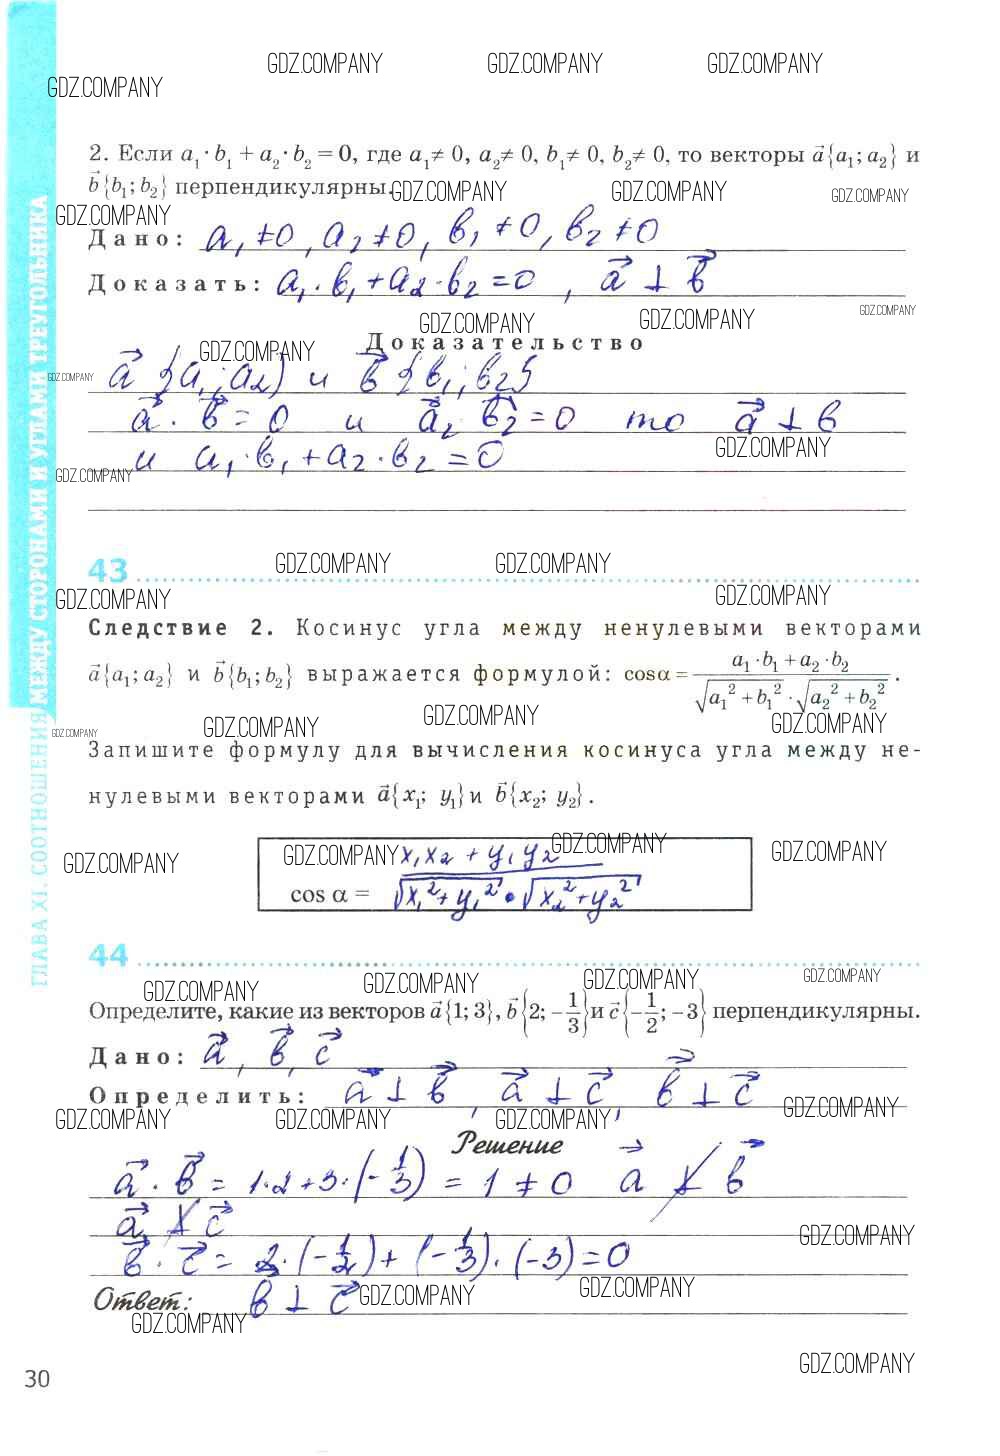 GDZ.COMPANY GDZ.COMPANY GDZ.COMPANY
GDZ.COMPANY
2. Если a₁·b₁ + a₂·b₂ = 0, где a₁≠ 0, a₂≠ 0, b₁≠ 0, b₂≠ 0, то векторы a⃗{a₁; a₂} и
b⃗{b₁; b₂} перпендикулярны. GDZ.COMPANY GDZ.COMPANY GDZ.COMPANY
GDZ.COMPANY
Дано: a₁≠0, a₂≠0, b₁≠0, b₂≠0
Доказать: a₁·b₁+a₂·b₂=0, a⃗ ⊥ b⃗
GDZ.COMPANY GDZ.COMPANY GDZ.COMPANY
Доказательство
GDZ.COMPANY
a⃗ {a₁; a₂) и b⃗ {b₁; b₂}
GDZ.COMPANY
a⃗ · b⃗ = 0 и a⃗₂ b⃗₂ = 0 то a⃗ ⊥ b
GDZ.COMPANY
и a₁·b₁+a₂·b₂=0
GDZ.COMPANY
43
GDZ.COMPANY GDZ.COMPANY
GDZ.COMPANY GDZ.COMPANY
Следствие 2. Косинус угла между ненулевыми векторами
a⃗{a₁; a₂} и b⃗{b₁; b₂} выражается формулой: cosα = (a₁·b₁+a₂·b₂)/(√(a₁²+b₁²)·√(a₂²+b₂²)).
GDZ.COMPANY GDZ.COMPANY GDZ.COMPANY GDZ.COMPANY
Запишите формулу для вычисления косинуса угла между не-
нулевыми векторами a⃗{x₁; y₁} и b⃗{x₂; y₂}.
GDZ.COMPANY GDZ.COMPANY GDZ.COMPANY GDZ.COMPANY
cos α = (x₁x₂ + y₁y₂)/(√(x₁²+y₁²)·√(x₂²+y₂²))
44
GDZ.COMPANY GDZ.COMPANY GDZ.COMPANY GDZ.COMPANY
Определите, какие из векторов a⃗{1; 3}, b⃗{2; −1/3} и c⃗{−1/2; −3} перпендикулярны.
Дано: a⃗, b⃗, c⃗
Определить: a⃗ ⊥ b⃗, a⃗ ⊥ c⃗, b⃗ ⊥ c⃗
GDZ.COMPANY GDZ.COMPANY GDZ.COMPANY GDZ.COMPANY
Решение
a⃗ · b⃗ = 1·2+3·(−1/3) = 1 ≠ 0 a⃗ ⊥̸ b⃗
a⃗ ⊥̸ c⃗
GDZ.COMPANY
b⃗ · c⃗ = 2·(−1/2)+(−1/3)·(−3)=0
Ответ: b ⊥ c⃗
GDZ.COMPANY GDZ.COMPANY GDZ.COMPANY
30
GDZ.COMPANY
ГЛАВА XI. СООТНОШЕНИЯ МЕЖДУ СТОРОНАМИ И УГЛАМИ ТРЕУГОЛЬНИКА